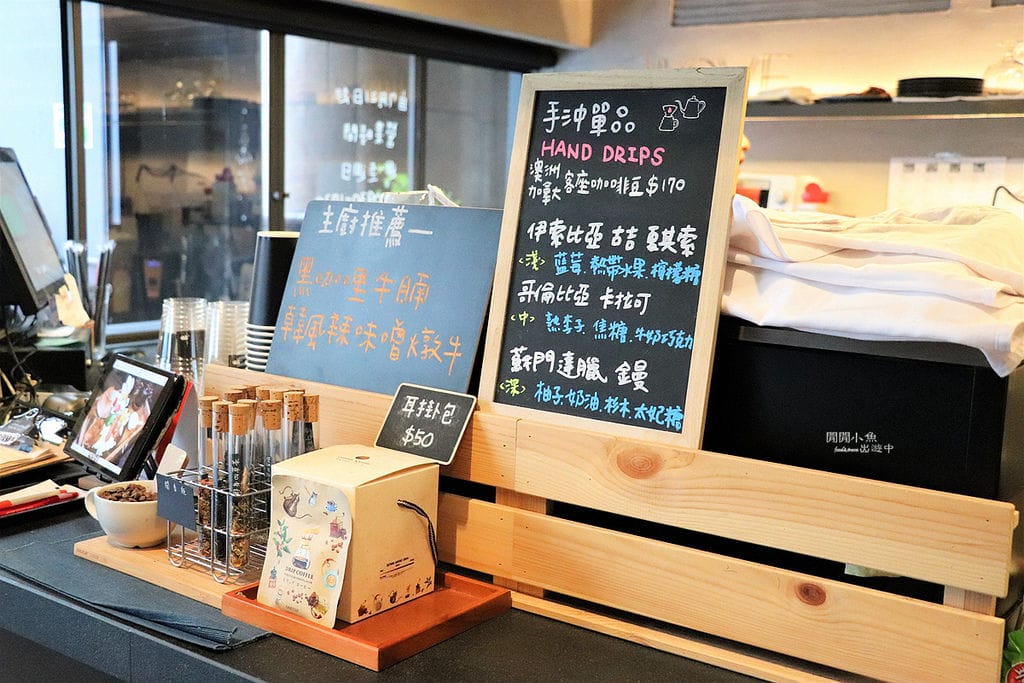 手沖單品
HAND DRIPS
澳洲
加拿大 客座咖啡豆 $170
伊索比亞 古吉
<淺> 藍莓.熱帶水果.檸檬糖
哥倫比亞 卡拉可
<中> 熟李子.焦糖.牛奶巧克力
蘇門達臘 鐘曼
<深> 柚子.奶油.杉木.太妃糖
主廚推薦
牛腩
韓風辣味噌燉牛
耳掛包
$50
DRIP COFFEE
營業時間
閒閒小魚
出遊中